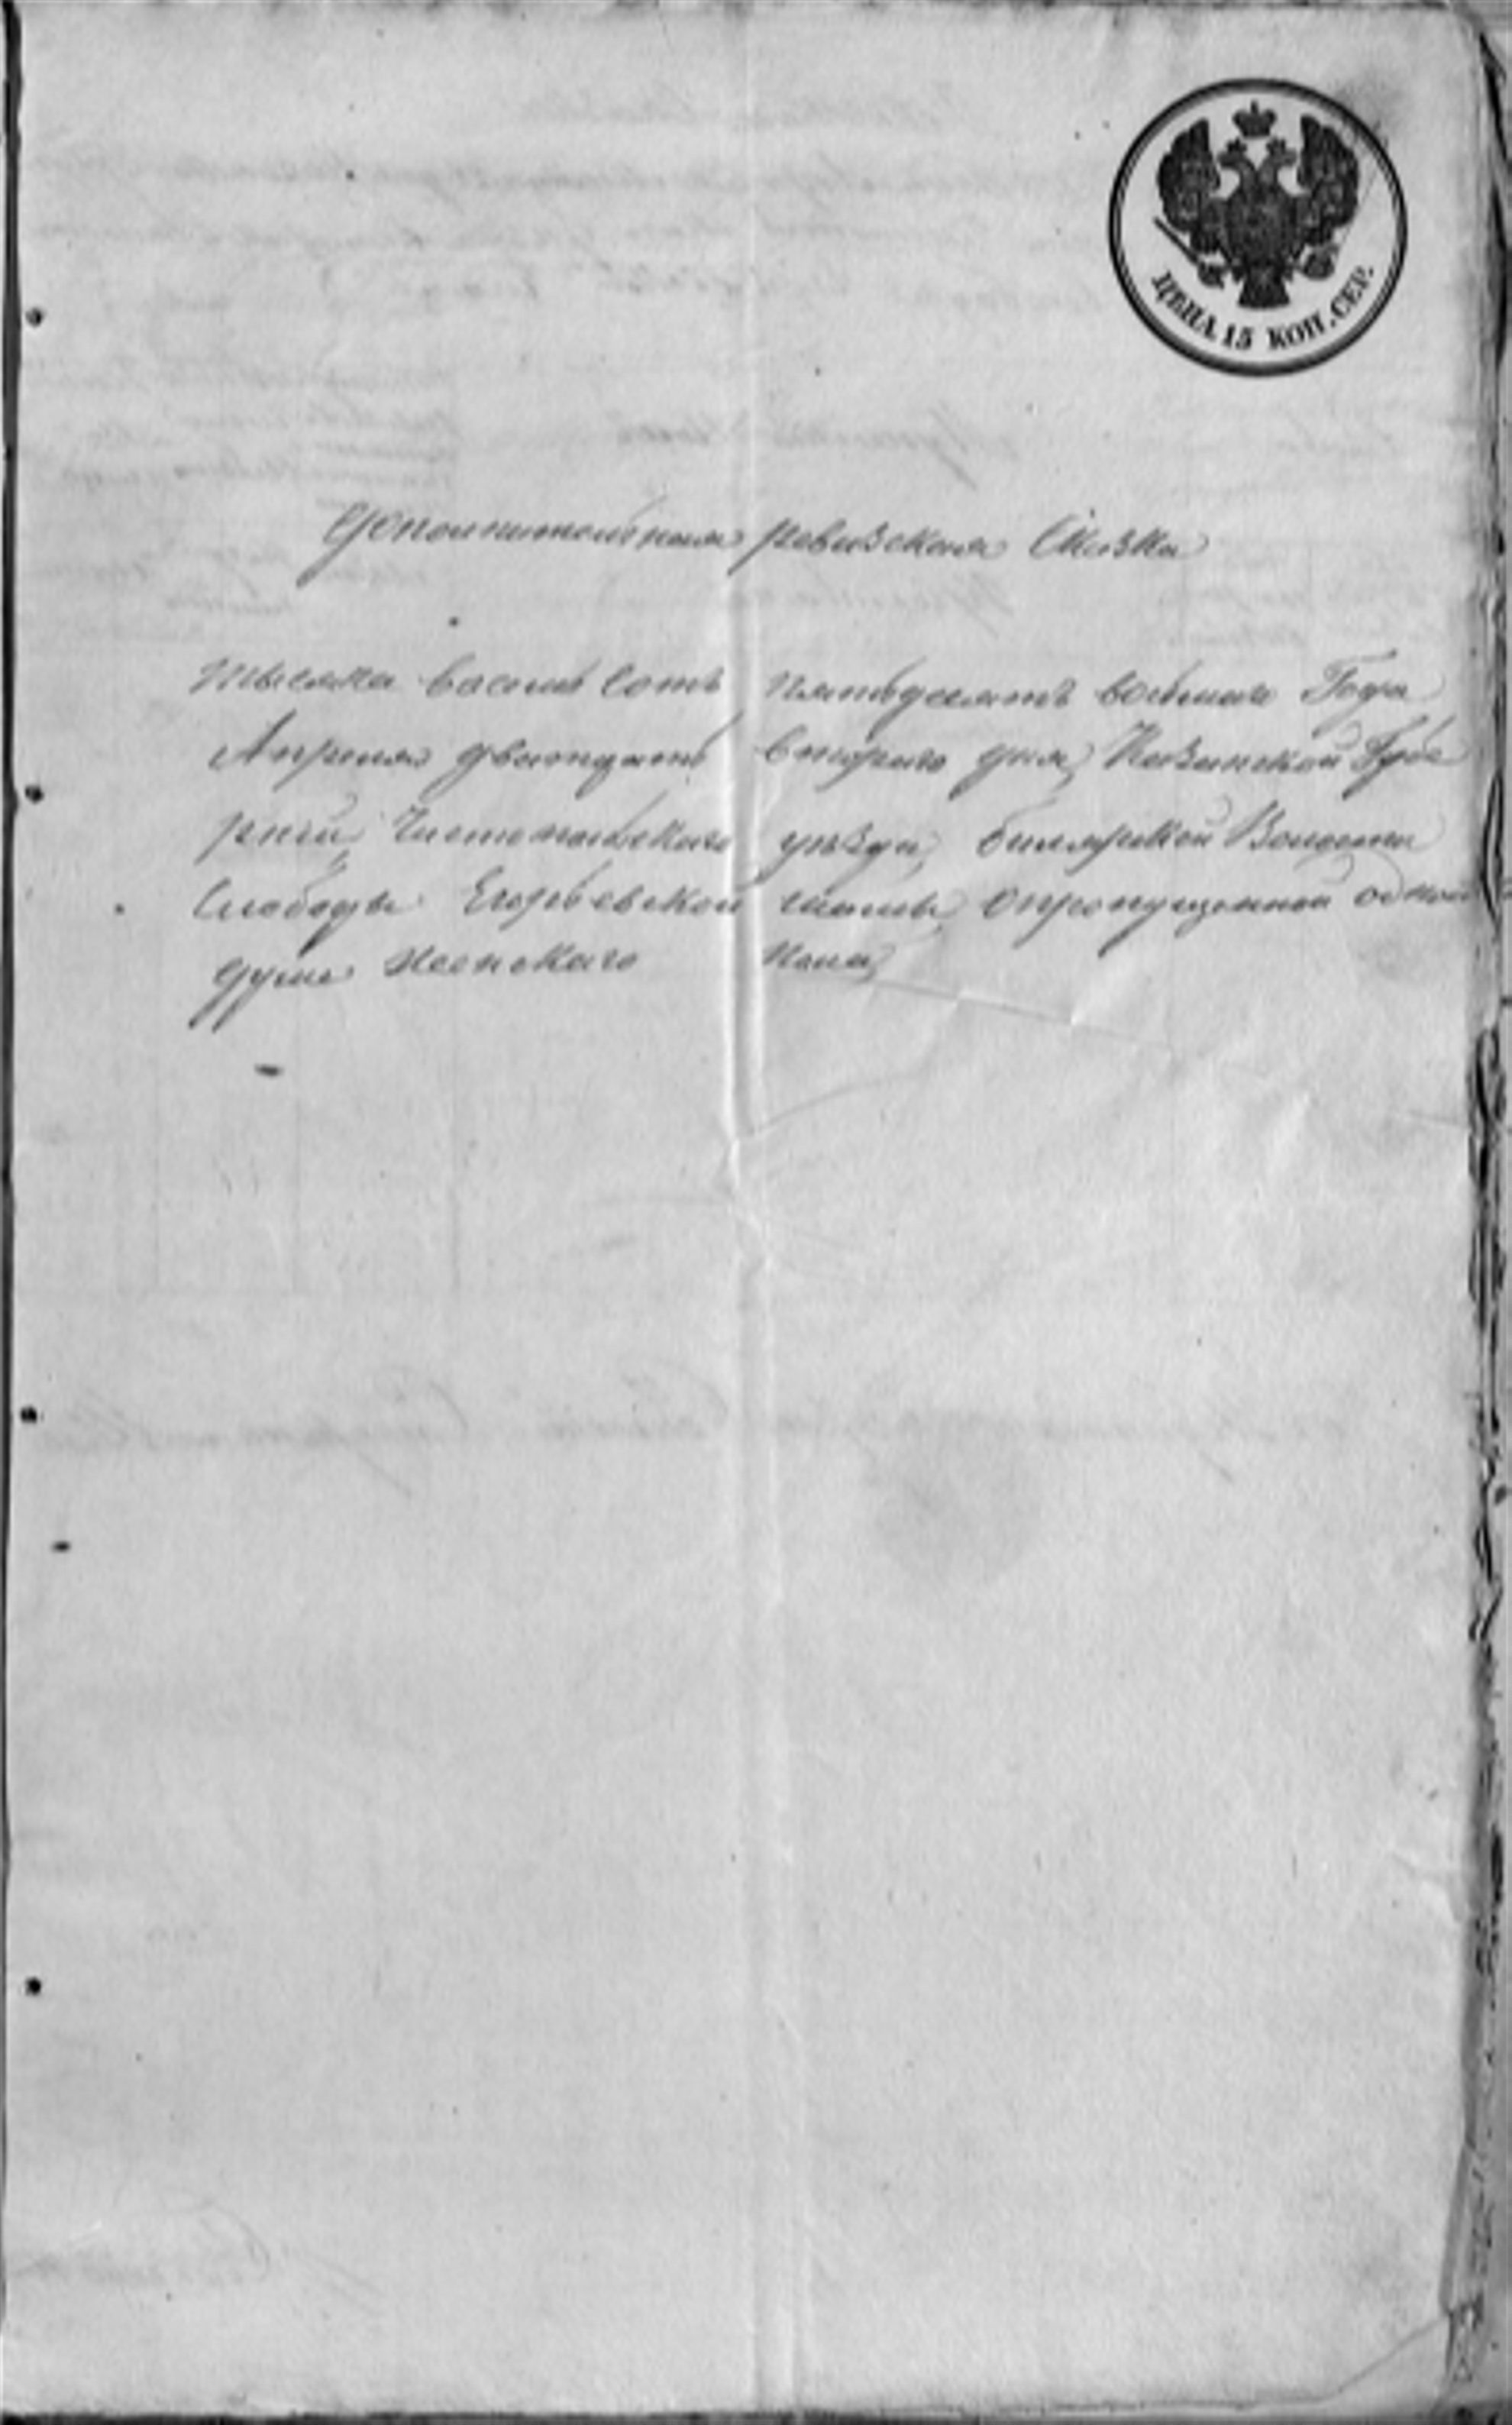 ЦѢНА 15 КОП. СЕР.
Дополнительная ревизская Сказка
тысяча восемь сотъ пятьдесятъ восьмаго Года
Апреля двадцать втораго дня, Казанской Губе
рніи Чистопольскаго уѣзда, билярской Волости
Слободы Егорьевской опропущенной одной
душе женскаго пола,